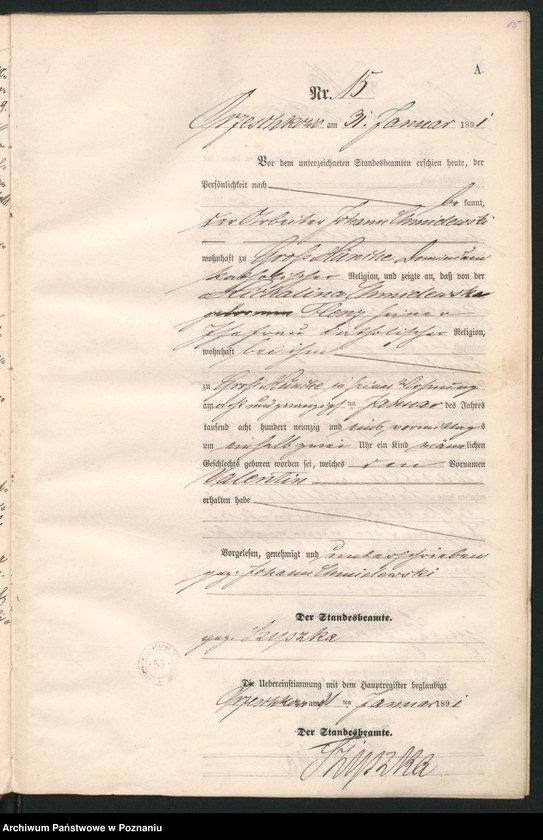 15
A
Nr. 15
Orzeschkowo am 31. Januar 1891
Vor dem unterzeichneten Standesbeamten erschien heute, der
Persönlichkeit nach
be kannt,
der Arbeiter Johann Chmielewski
wohnhaft zu Groß Münche Dominium
katholischer Religion, und zeigte an, daß von der
Michalina Chmielewska
geborenen Flenz seiner
Ehefrau katholischer Religion,
wohnhaft bei ihm
zu Groß Münche in seiner Wohnung
am acht und zwanzigsten Januar des Jahres
tausend acht hundert neunzig und eins, vormittags
um ein halb zwei Uhr ein Kind männlichen
Geschlechts geboren worden sei, welches den Vornamen
Valentin
erhalten habe
Vorgelesen, genehmigt und unterschrieben
gez. Johann Chmielewski
Der Standesbeamte.
gez. Szyszka
Die Uebereinstimmung mit dem Hauptregister beglaubigt
Orzeschkowo am 31 ten Januar 1891
Der Standesbeamte.
Szyszka
53
Archiwum Państwowe w Poznaniu